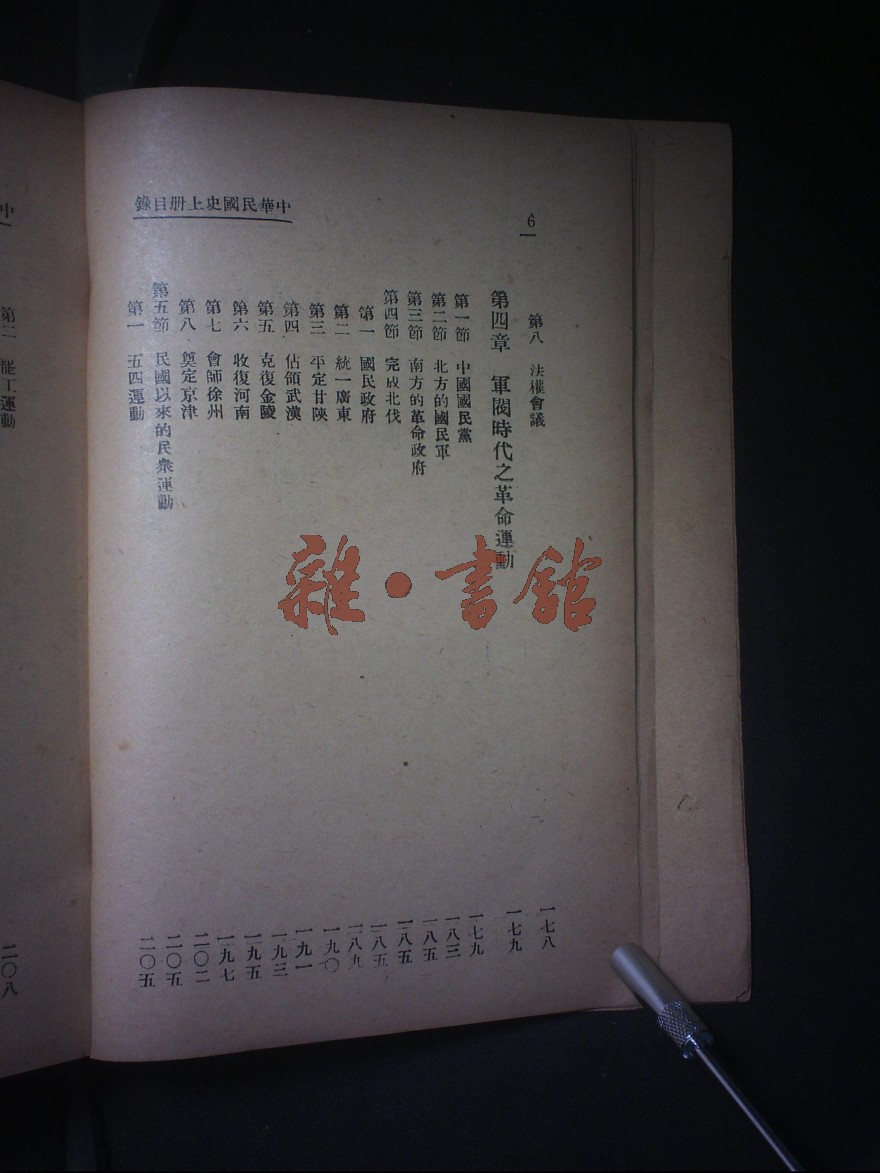 6
中華民國史上册目錄
第八 法權會議 一七八
第四章 軍閥時代之革命運動 一七九
第一節 中國國民黨 一七九
第二節 北方的國民軍 一八三
第三節 南方的革命政府 一八五
第四節 完成北伐 一八五
第一 國民政府 一八五
第二 統一廣東 一八九
第三 平定甘陝 一九〇
第四 佔領武漢 一九一
第五 克復金陵 一九三
第六 收復河南 一九五
第七 會師徐州 一九七
第八 奠定京津 二〇二
第五節 民國以來的民衆運動 二〇五
第一 五四運動 二〇五
中
第二 罷工運動 二〇八
雜·書館